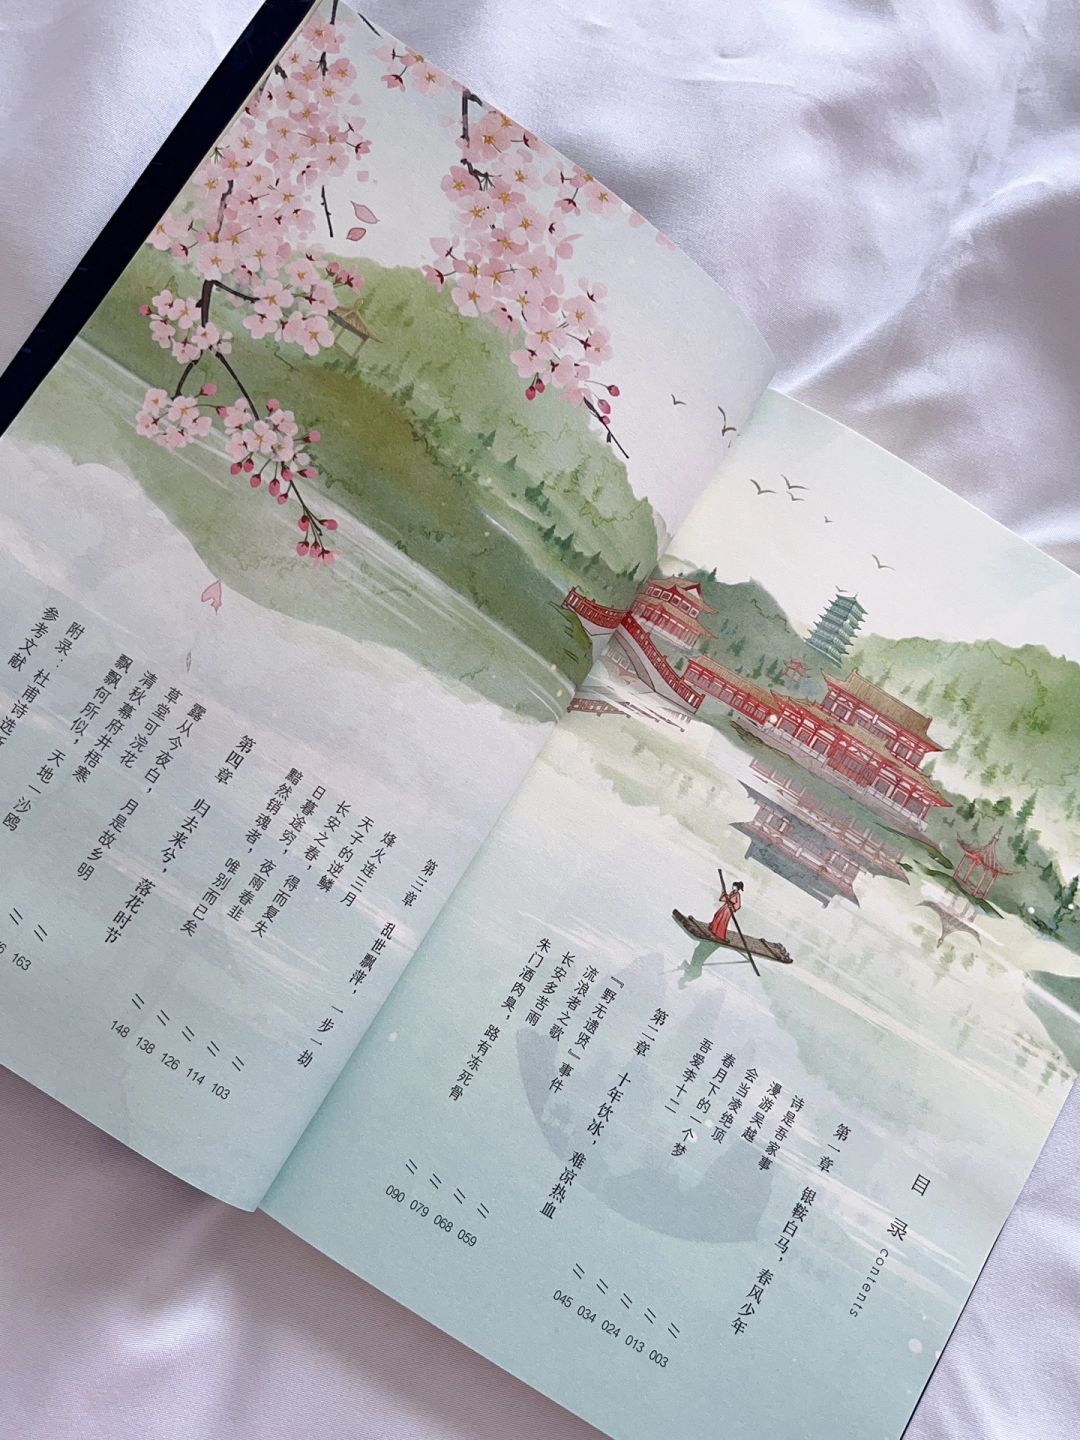 目 录
contents
第一章 银鞍白马，春风少年
诗是吾家事
漫游吴越
会当凌绝顶
春月下的一个梦
吾爱李十二
003
013
024
034
045
第二章 十年饮冰，难凉热血
『野无遗贤』事件
流浪者之歌
长安多苦雨
朱门酒肉臭，路有冻死骨
059
068
079
090
第三章 乱世飘萍，一步一劫
烽火连三月
天子的逆鳞
长安之春，得而复失
日暮途穷，夜雨春韭
黯然销魂者，唯别而已矣
103
114
126
138
148
第四章 归去来兮，落花时节
露从今夜白，月是故乡明
草堂可浣花
清秋幕府井梧寒
飘飘何所似，天地一沙鸥
163
附录：杜甫诗选
参考文献